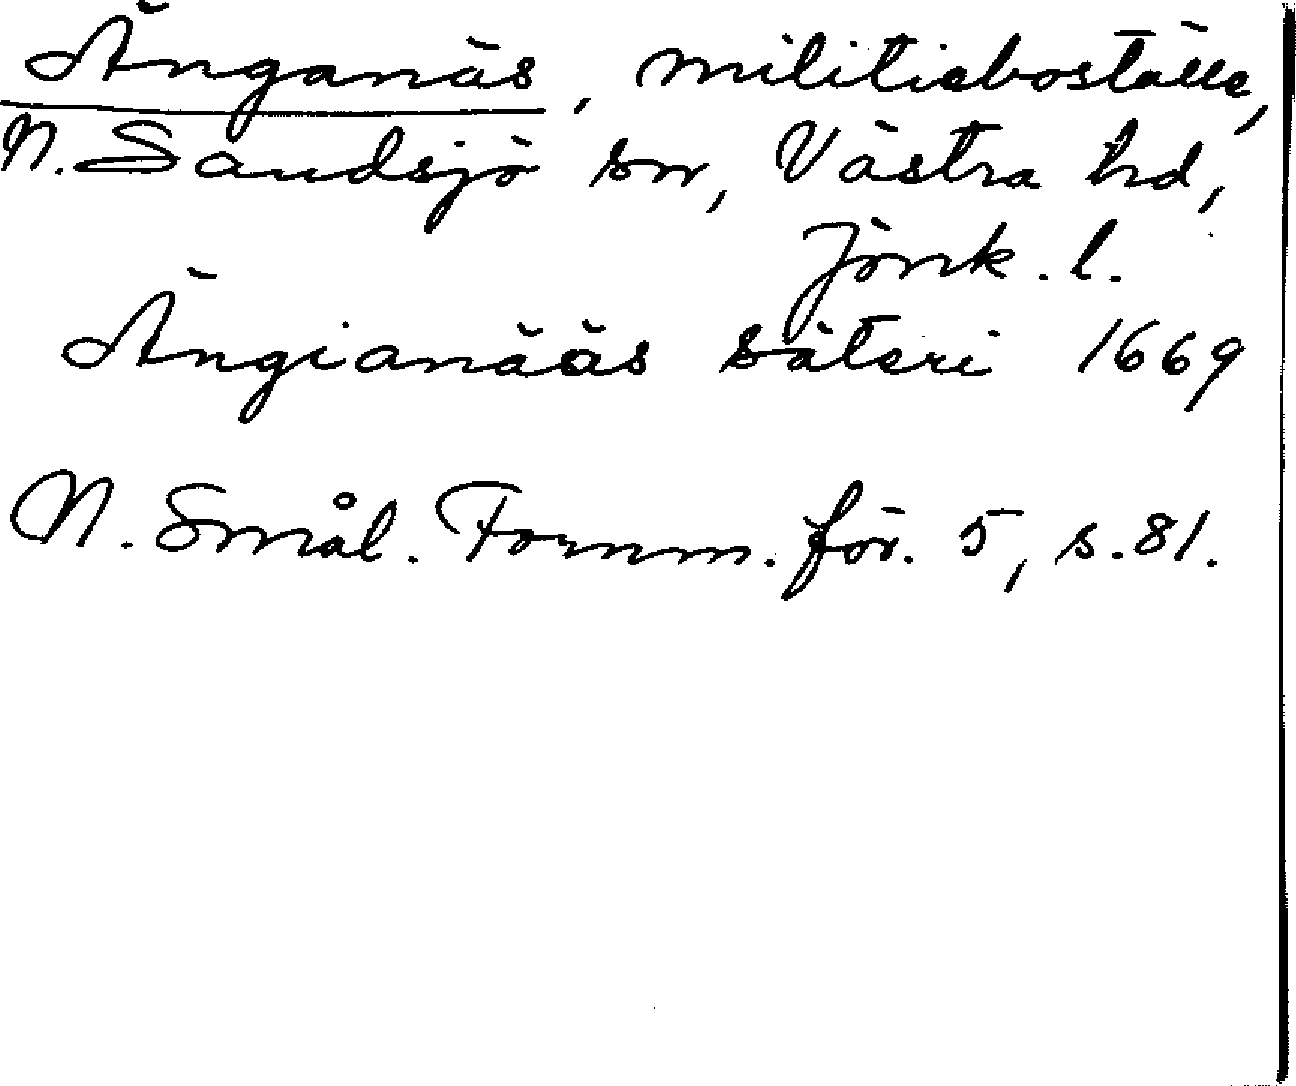 Änganäs, militieboställe,
N. Sandsjö sn, Västra hd,
Jönk. l.
Ängianääs säteri 1669
N. Smål. Fornm. för. 5, s. 81.